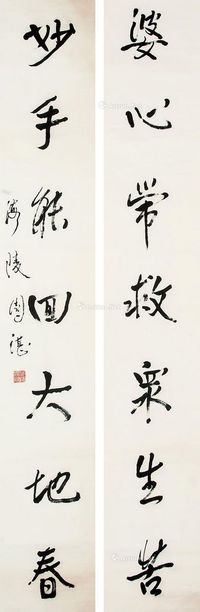 婆心常救衆生苦
妙手能回大地春
海陵圓湛